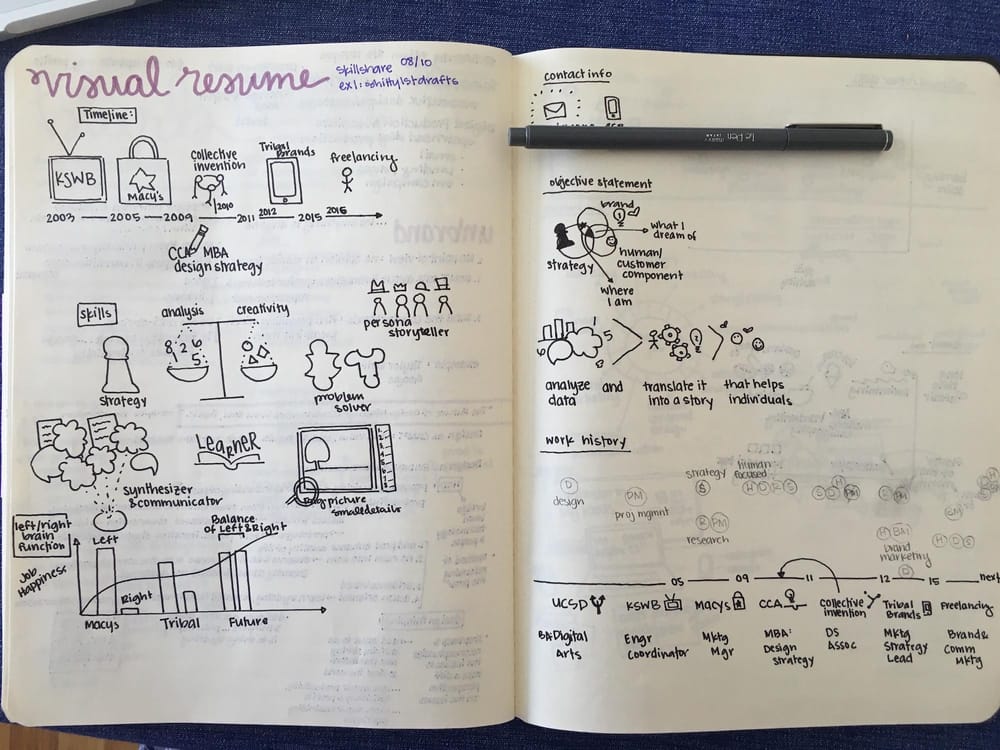 visual resume
skillshare 08/10
ex1: shitty1stdrafts
Timeline:
KSWB
Macy's
collective
invention
Tribal
Brands
freelancing
2003 2005 2009 2010 2011 2012 2015 2016
CCA MBA
design strategy
skills
analysis creativity
persona
storyteller
8 2 6
5
strategy
problem
solver
Learner
synthesizer
& communicator
Big picture
small details
left/right
brain
function
Left
Balance
of Left & Right
Job
Happiness
Right
Macys Tribal Future
contact info
Le Pen
objective statement
brand
what I
dream of
strategy
human/
customer
component
where
I am
6 5
analyze and translate it that helps
data into a story individuals
work history
D
design
PM
proj mgmt
strategy
S
R PM
research
human
focused
brand
marketing
D
05 09 11 12 15 next
UCSD KSWB Macys CCA collective
invention
Tribal
Brands
Freelancing
BA: Digital
Arts
Engr
Coordinator
Mktg
Mgr
MBA:
Design
Strategy
DS
Assoc
Mktg
Strategy
Lead
Brand &
Comm
Mktg